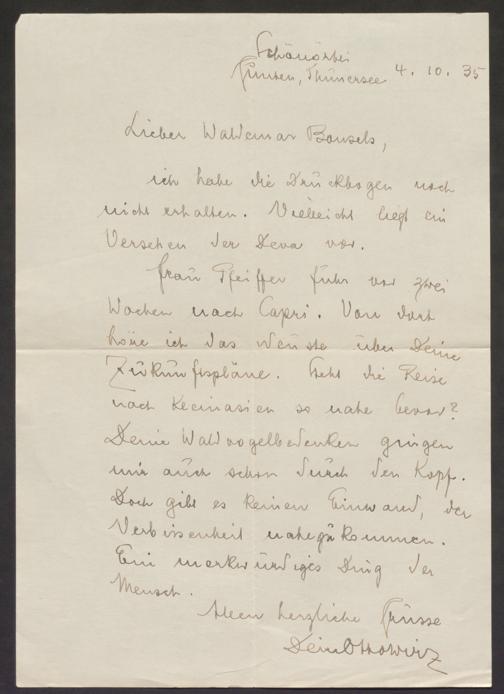 Schönörtli
Gunten, Thunersee 4. 10. 35
Lieber Waldemar Bonsels,
ich habe die Druckbogen noch
nicht erhalten. Vielleicht liegt ein
Versehen der Deva vor.
Frau Pfeiffer fuhr vor zwei
Wochen nach Capri. Von dort
höre ich das neuste über Deine
Zukunftspläne. Steht die Reise
nach Kleinasien so nahe bevor?
Deine Waldvogelbedenken gingen
mir auch schon durch den Kopf.
Doch gibt es keinen Einwand, der
Verbissenheit nahezukommen.
Ein merkwürdiges Ding der
Mensch.
Allen herzliche Grüsse
Dein